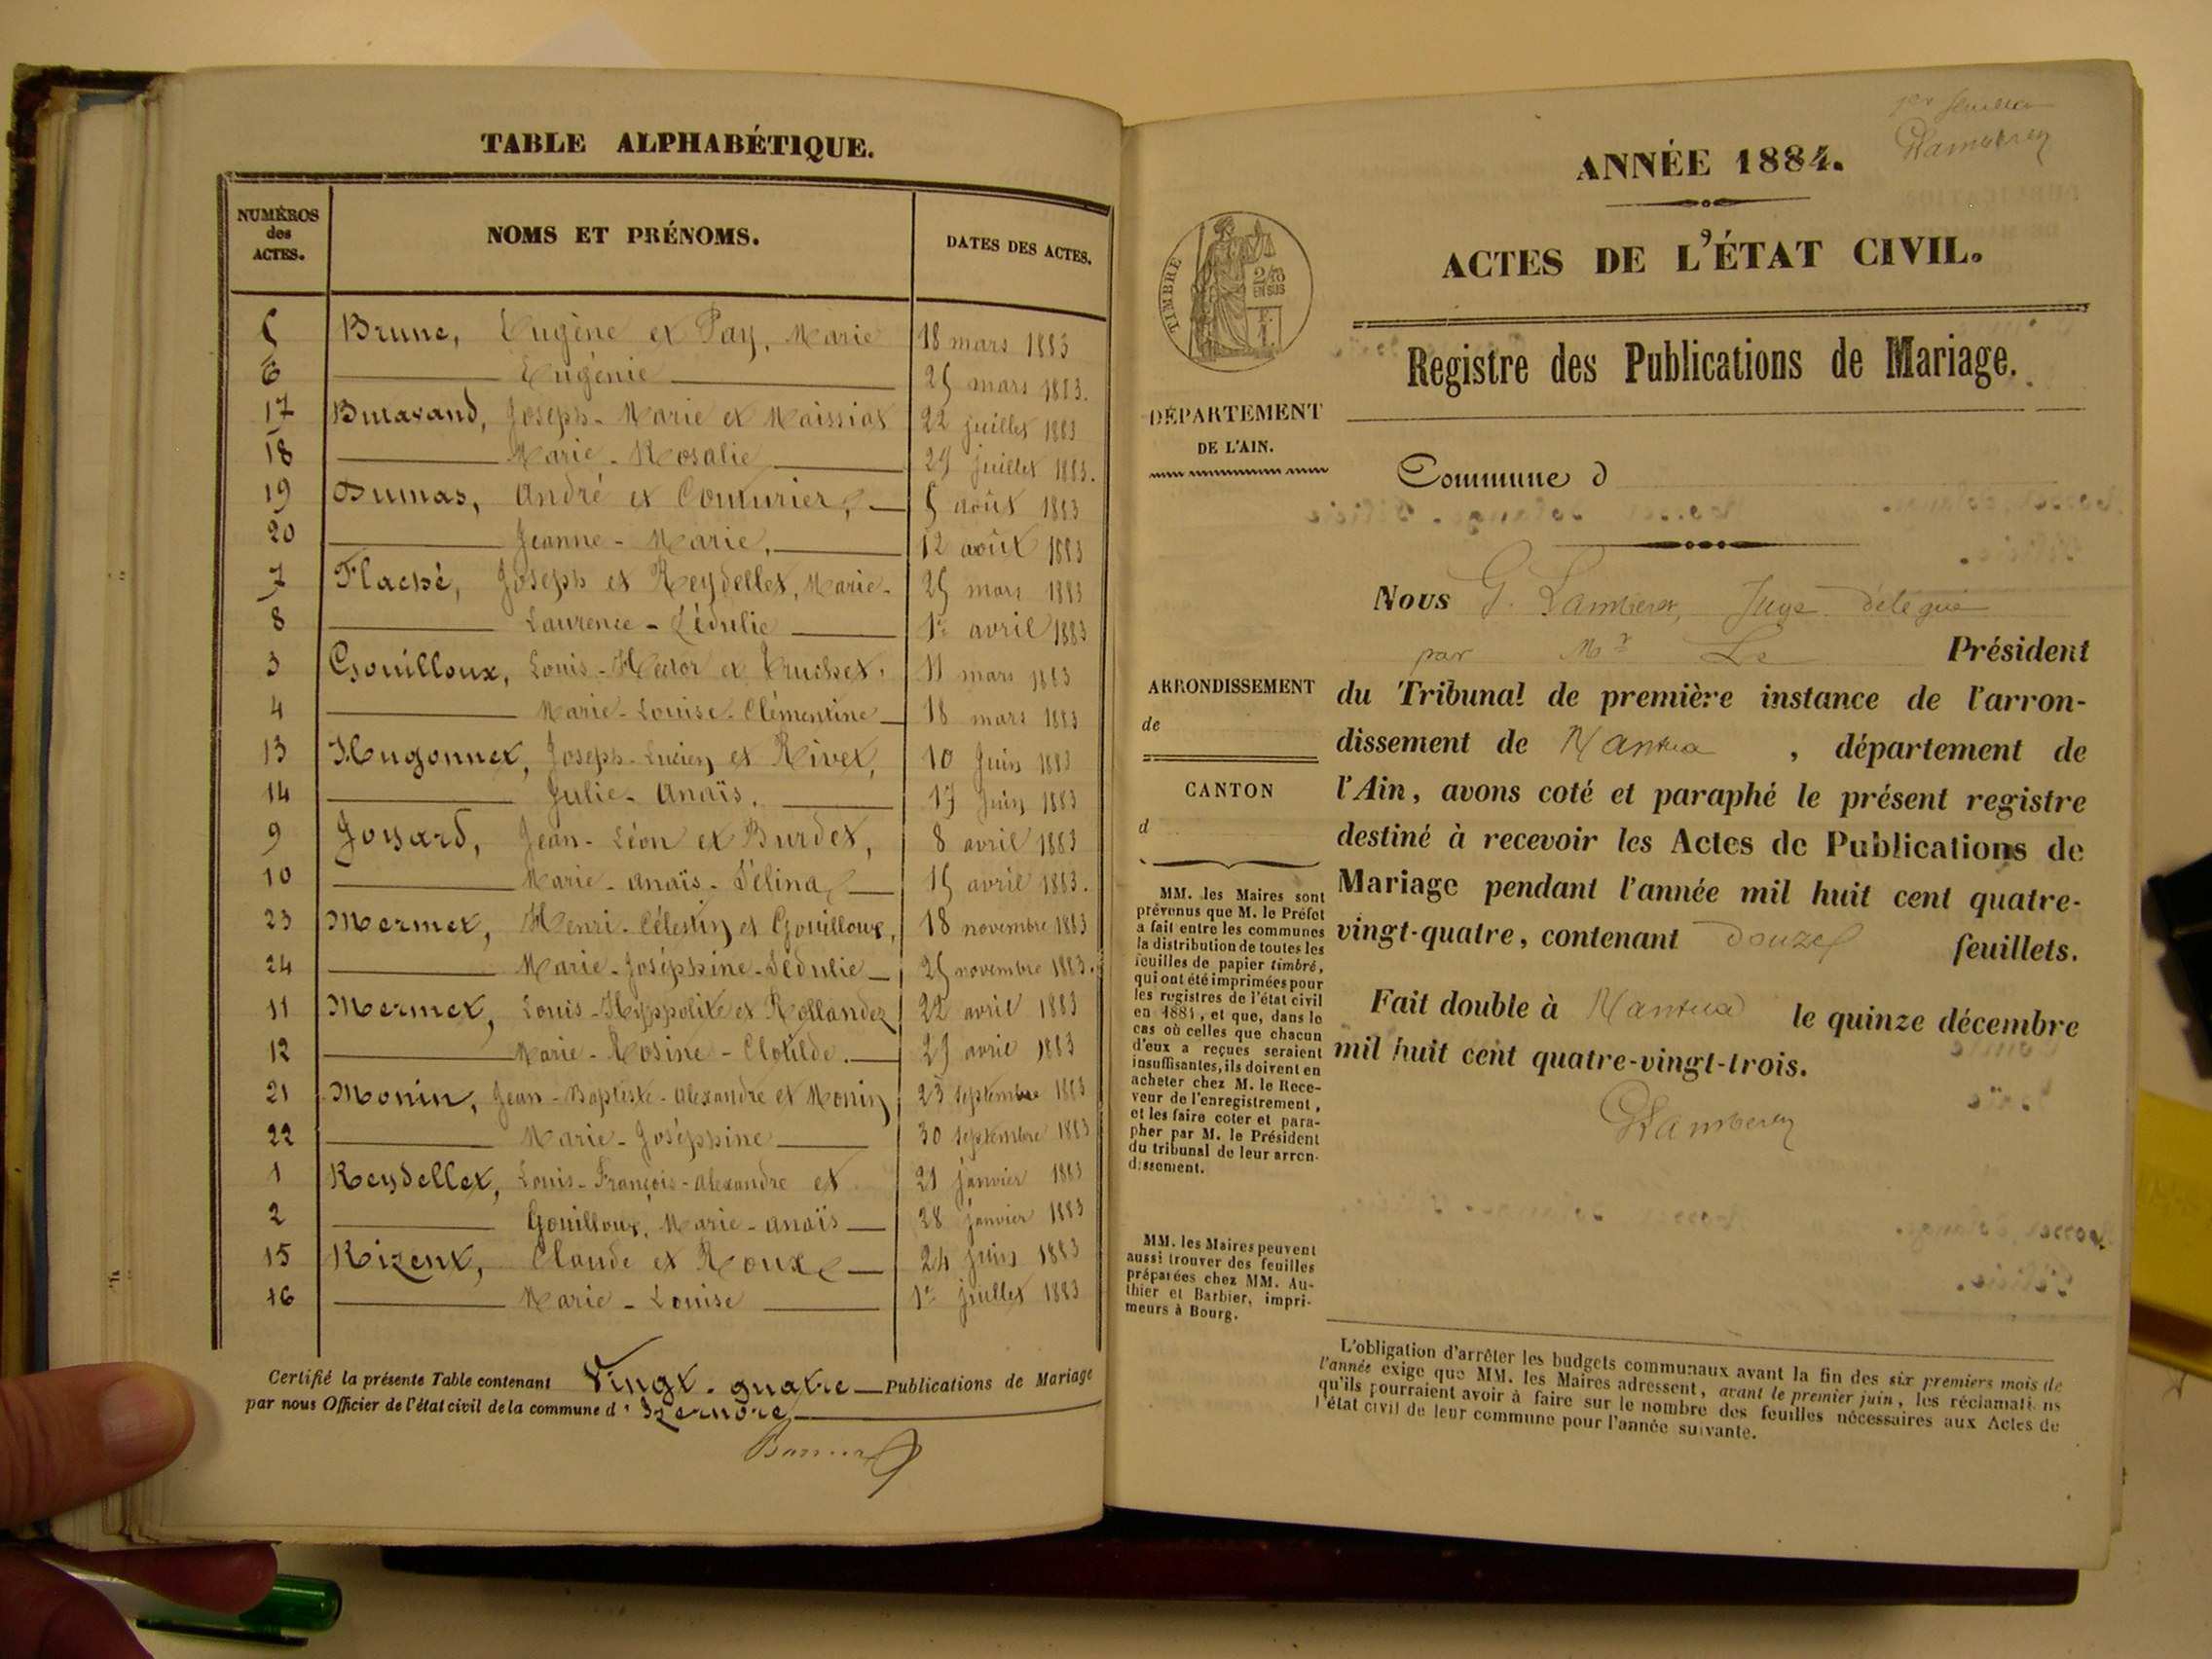 TABLE ALPHABÉTIQUE.
NUMÉROS des ACTES. NOMS ET PRÉNOMS. DATES DES ACTES.
5 Brune, Eugène et Pay, Marie 18 mars 1883
6 Eugénie 25 mars 1883.
17 Butavand, Joseph-Marie et Maissiat 22 juillet 1883
18 Marie-Rosalie 29 juillet 1883.
19 Dumas, André et Couturier, 5 août 1883
20 Jeanne-Marie, 12 août 1883
7 Flaché, Joseph et Reydellet, Marie- 25 mars 1883
8 Laurence-Sédulie 1er avril 1883
3 Gouilloux, Louis-Hector et Truchet, 11 mars 1883
4 Marie-Louise-Clémentine 18 mars 1883
13 Hugonnet, Joseph-Lucien et Rivet, 10 Juin 1883
14 Julie-Anaïs. 17 Juin 1883
9 Joyard, Jean-Léon et Burdet, 8 avril 1883
10 Marie-Anaïs-Sélina 15 avril 1883.
23 Mermet, Henri-Célestin et Gouilloux, 18 novembre 1883
24 Marie-Joséphine-Sédulie 25 novembre 1883.
11 Mermet, Louis-Hyppolite et Rollandez 22 avril 1883
12 Marie-Rosine-Clotilde. 29 avril 1883
21 Monin, Jean-Baptiste-Alexandre et Monin 23 septembre 1883
22 Marie-Joséphine 30 septembre 1883
1 Reydellet, Louis-François-Alexandre et 21 janvier 1883
2 Gouilloux, Marie-Anaïs 28 janvier 1883
15 Rizent, Claude et Roux 24 juin 1883
16 Marie-Louise 1er juillet 1883
Certifié la présente Table contenant Vingt-quatre Publications de Mariage
par nous Officier de l'état civil de la commune d'Izernore
1er feuillet
GLamberet
ANNÉE 1884.
ACTES DE L'ÉTAT CIVIL.
Registre des Publications de Mariage.
TIMBRE
2/10
EN SUS
DÉPARTEMENT
DE L'AIN.
Commune d
Nous G. Lamberet, Juge délégué
par Mr Le Président
du Tribunal de première instance de l'arron-
dissement de Nantua, département de
l'Ain, avons coté et paraphé le présent registre
destiné à recevoir les Actes de Publications de
Mariage pendant l'année mil huit cent quatre-
vingt-quatre, contenant douze feuillets.
Fait double à Nantua le quinze décembre
mil huit cent quatre-vingt-trois.
GLamberet
ARRONDISSEMENT
de
CANTON
d
MM. les Maires sont
prévenus que M. le Préfet
a fait entre les communes
la distribution de toutes les
feuilles de papier timbré,
qui ont été imprimées pour
les registres de l'état civil
en 1884, et que, dans le
cas où celles que chacun
d'eux a reçues seraient
insuffisantes, ils doivent en
acheter chez M. le Rece-
veur de l'enregistrement,
et les faire coter et para-
pher par M. le Président
du tribunal de leur arron-
dissement.
MM. les Maires peuvent
aussi trouver des feuilles
préparées chez MM. Au-
thier et Barbier, impri-
meurs à Bourg.
L'obligation d'arrêter les budgets communaux avant la fin des six premiers mois de
l'année exige que MM. les Maires adressent, avant le premier juin, les réclamations
qu'ils pourraient avoir à faire sur le nombre des feuilles nécessaires aux Actes de
l'état civil de leur commune pour l'année suivante.